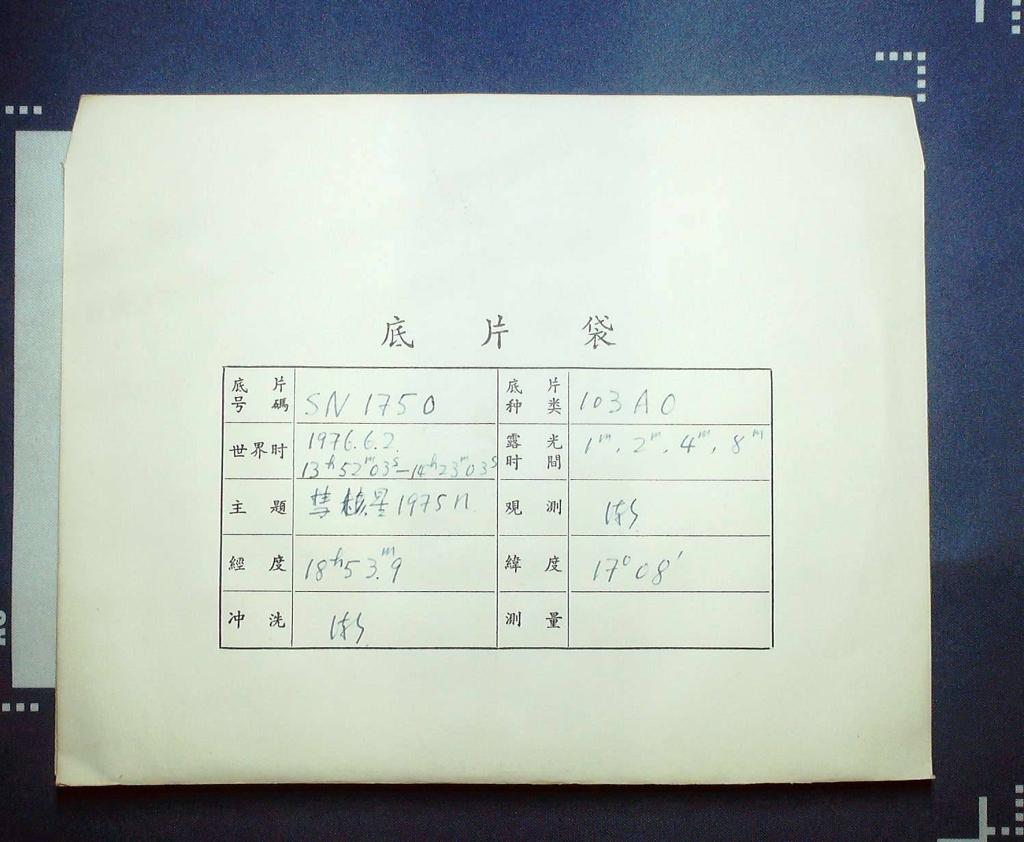 底片袋
底片号碼 SN 1750 底片种类 103 A O
世界时 1976.6.2. 13ʰ52ᵐ03ˢ—14ʰ23ᵐ03ˢ 露光时間 1ᵐ, 2ᵐ, 4ᵐ, 8ᵐ
主題 彗核星1975n 观測
經度 18ʰ53.ᵐ9 緯度 17°08′
冲洗 測量